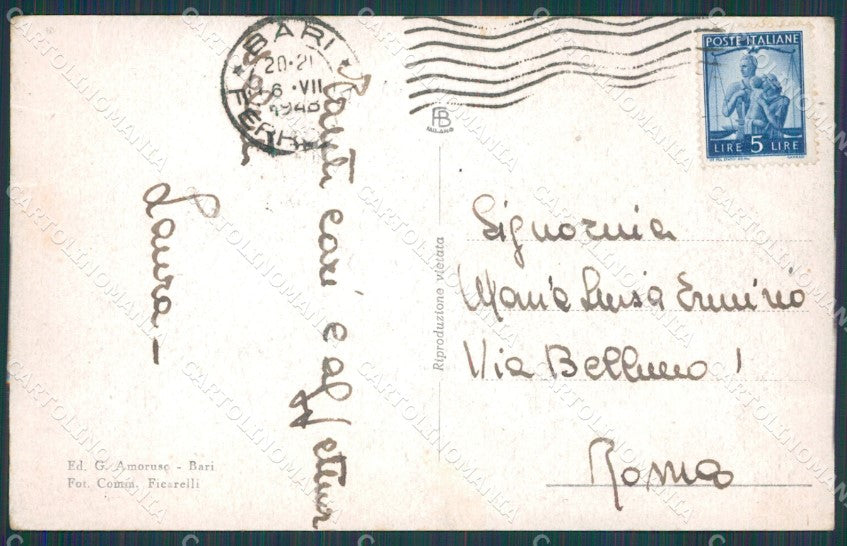 BARI
20-21
6 · VII
1948
FERR
POSTE ITALIANE
LIRE 5 LIRE
FB
MILANO
Saluti cari e affettuosi
Laura –
Signorina
Maria Luisa Erminio
Via Belluno 1
Roma
Riproduzione vietata
Ed. G. Amoruso - Bari
Fot. Comm. Ficarelli
CARTOLINOMANIA